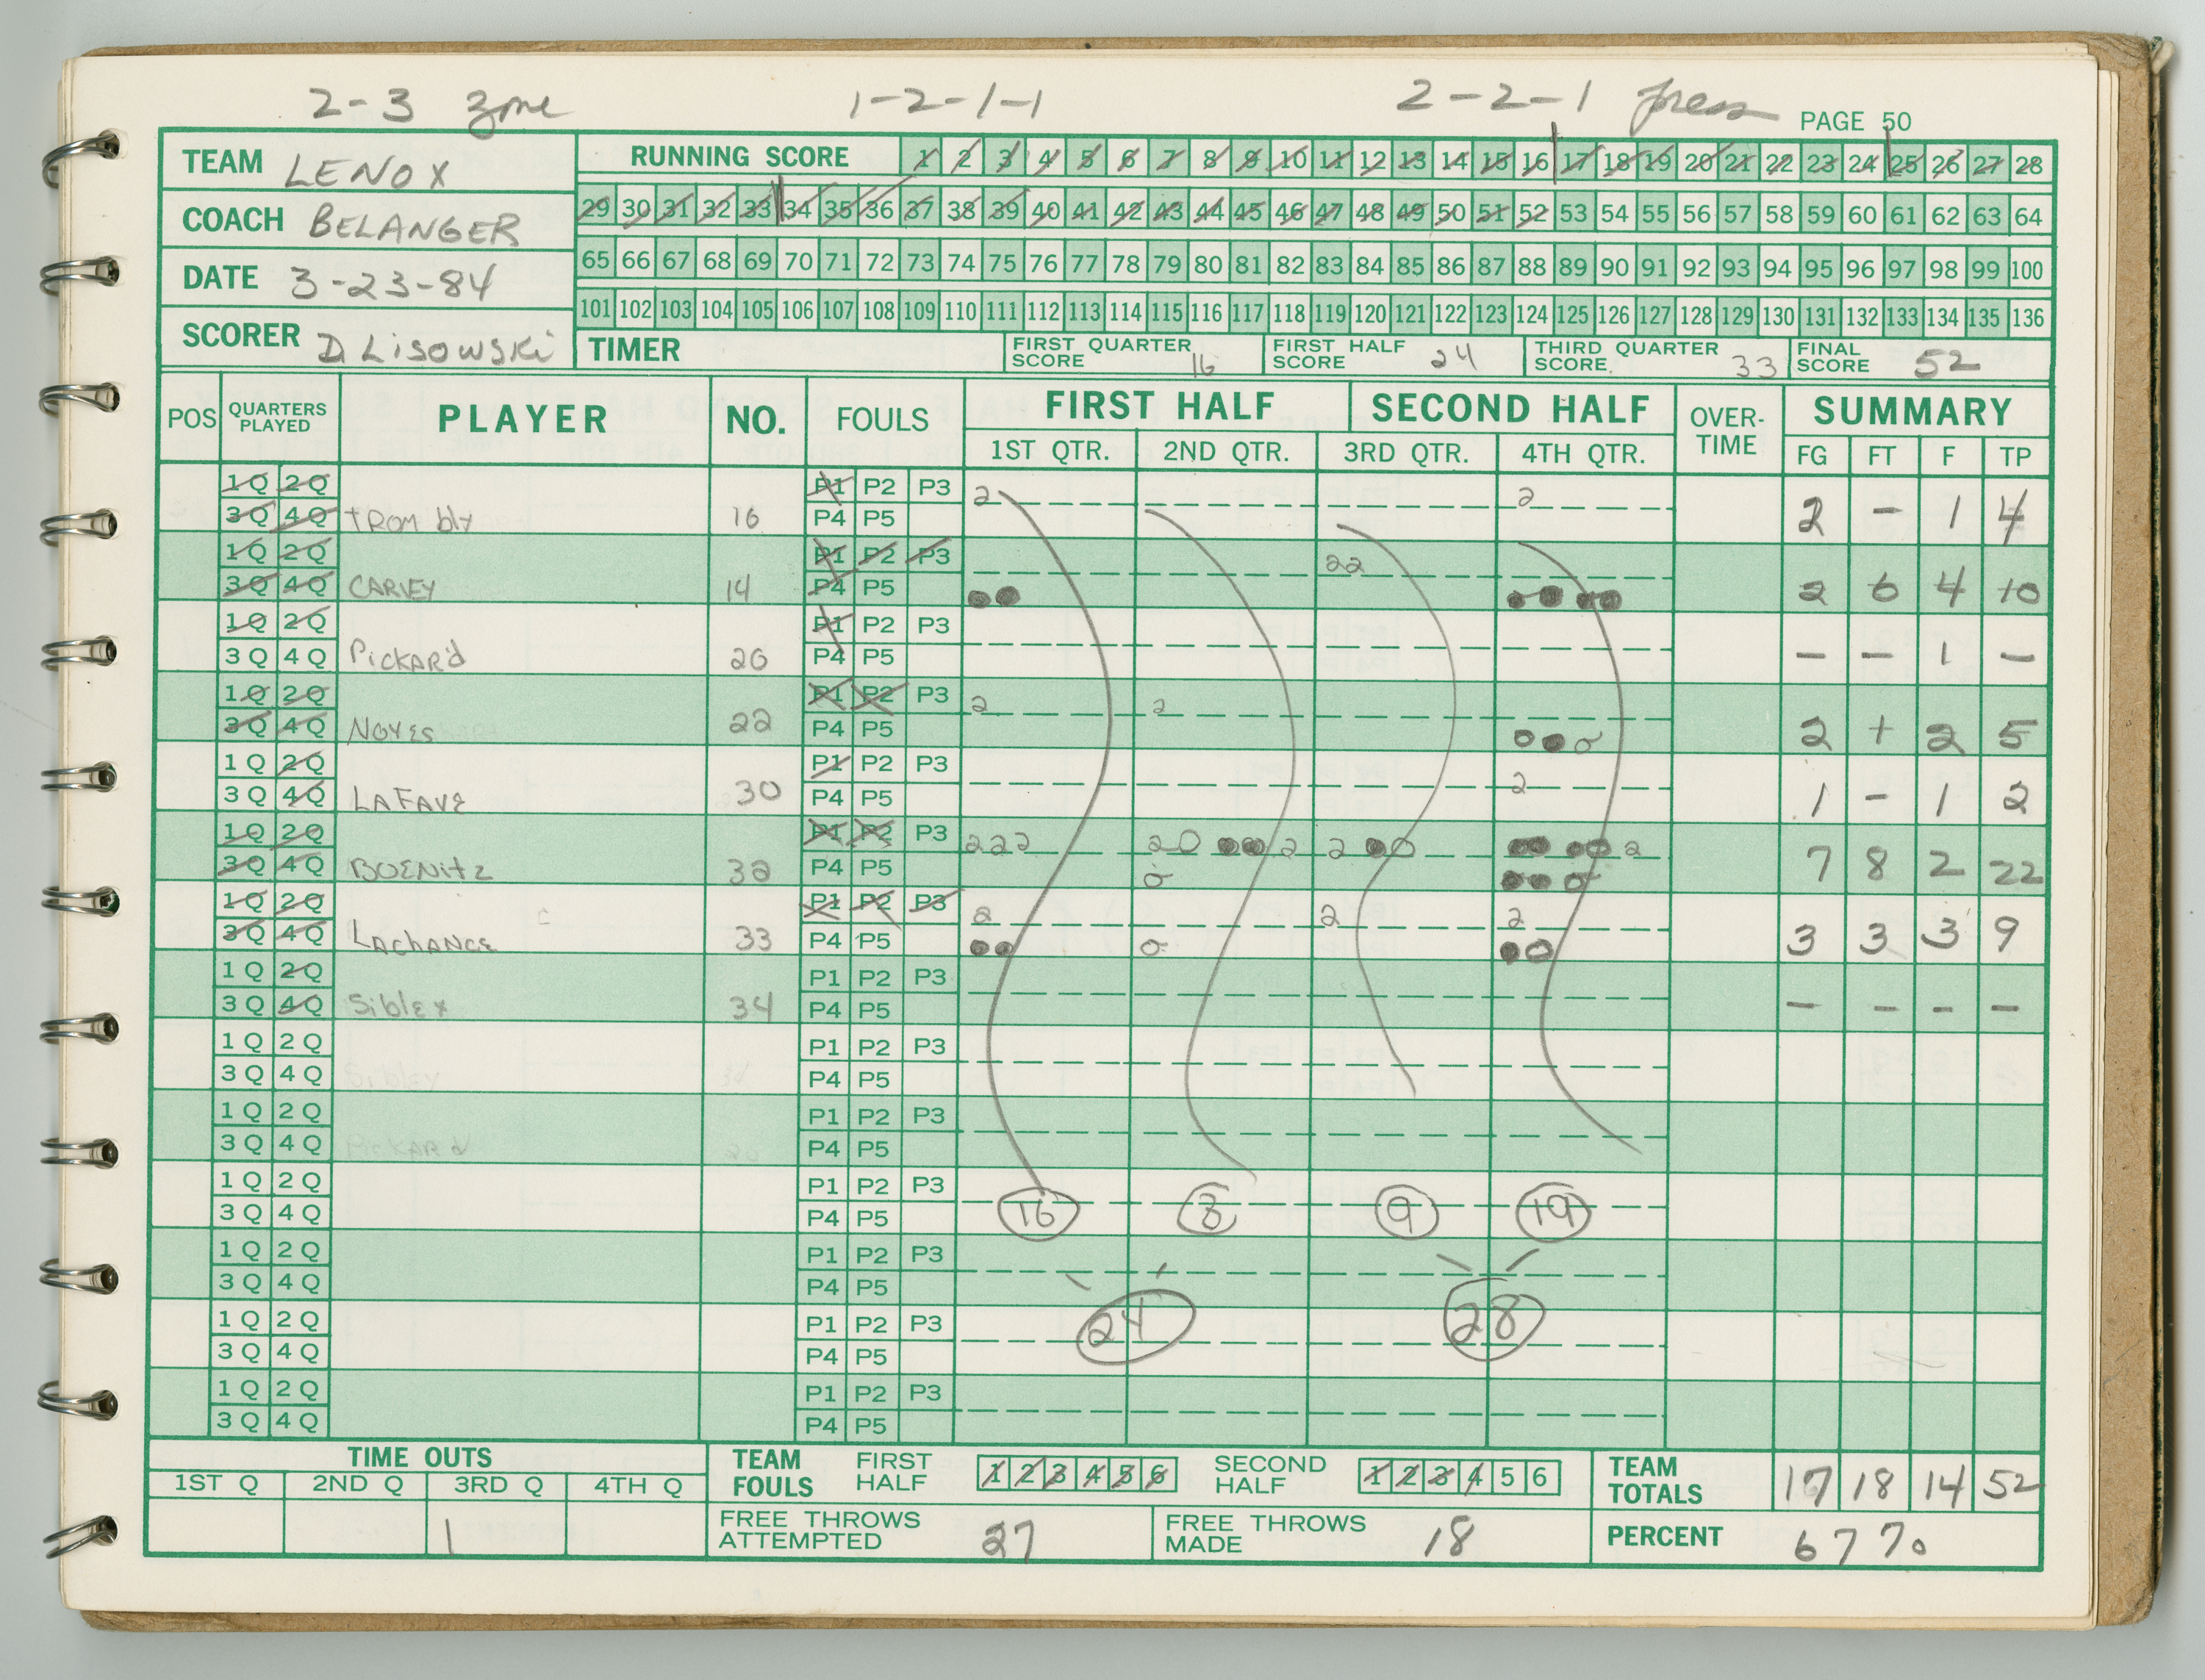 2-3 zone 1-2-1-1 2-2-1 press PAGE 50
TEAM LENOX
COACH BELANGER
DATE 3-23-84
SCORER D LISOWSKI
RUNNING SCORE 1 2 3 4 5 6 7 8 9 10 11 12 13 14 15 16 17 18 19 20 21 22 23 24 25 26 27 28
29 30 31 32 33 34 35 36 37 38 39 40 41 42 43 44 45 46 47 48 49 50 51 52 53 54 55 56 57 58 59 60 61 62 63 64
65 66 67 68 69 70 71 72 73 74 75 76 77 78 79 80 81 82 83 84 85 86 87 88 89 90 91 92 93 94 95 96 97 98 99 100
101 102 103 104 105 106 107 108 109 110 111 112 113 114 115 116 117 118 119 120 121 122 123 124 125 126 127 128 129 130 131 132 133 134 135 136
TIMER FIRST QUARTER SCORE 16 FIRST HALF SCORE 24 THIRD QUARTER SCORE 33 FINAL SCORE 52
POS QUARTERS PLAYED PLAYER NO. FOULS FIRST HALF SECOND HALF OVER-TIME SUMMARY
1ST QTR. 2ND QTR. 3RD QTR. 4TH QTR. FG FT F TP
1Q 2Q P1 P2 P3 2 2
3Q 4Q TROMbly 16 P4 P5 2 - 1 4
1Q 2Q P1 P2 P3 22
3Q 4Q CARVEY 14 P4 P5 2 6 4 10
1Q 2Q P1 P2 P3
3Q 4Q PickARd 20 P4 P5 - - 1 -
1Q 2Q P1 P2 P3 2 2
3Q 4Q NOYES 22 P4 P5 2 1 2 5
1Q 2Q P1 P2 P3
3Q 4Q LAFAVE 30 P4 P5 2 1 - 1 2
1Q 2Q P1 P2 P3 222 2 2 2 2
3Q 4Q BOENitz 32 P4 P5 7 8 2 22
1Q 2Q P1 P2 P3 2 2 2
3Q 4Q LAChANCE 33 P4 P5 3 3 3 9
1Q 2Q P1 P2 P3
3Q 4Q Sibley 34 P4 P5 - - - -
1Q 2Q P1 P2 P3
3Q 4Q Sibley 34 P4 P5
1Q 2Q P1 P2 P3
3Q 4Q PickARd 20 P4 P5
1Q 2Q P1 P2 P3
3Q 4Q P4 P5 16 8 9 19
1Q 2Q P1 P2 P3
3Q 4Q P4 P5
1Q 2Q P1 P2 P3 24 28
3Q 4Q P4 P5
1Q 2Q P1 P2 P3
3Q 4Q P4 P5
TIME OUTS
1ST Q 2ND Q 3RD Q 4TH Q
1
TEAM FOULS FIRST HALF 1 2 3 4 5 6 SECOND HALF 1 2 3 4 5 6 TEAM TOTALS 17 18 14 52
FREE THROWS ATTEMPTED 27 FREE THROWS MADE 18 PERCENT 67%